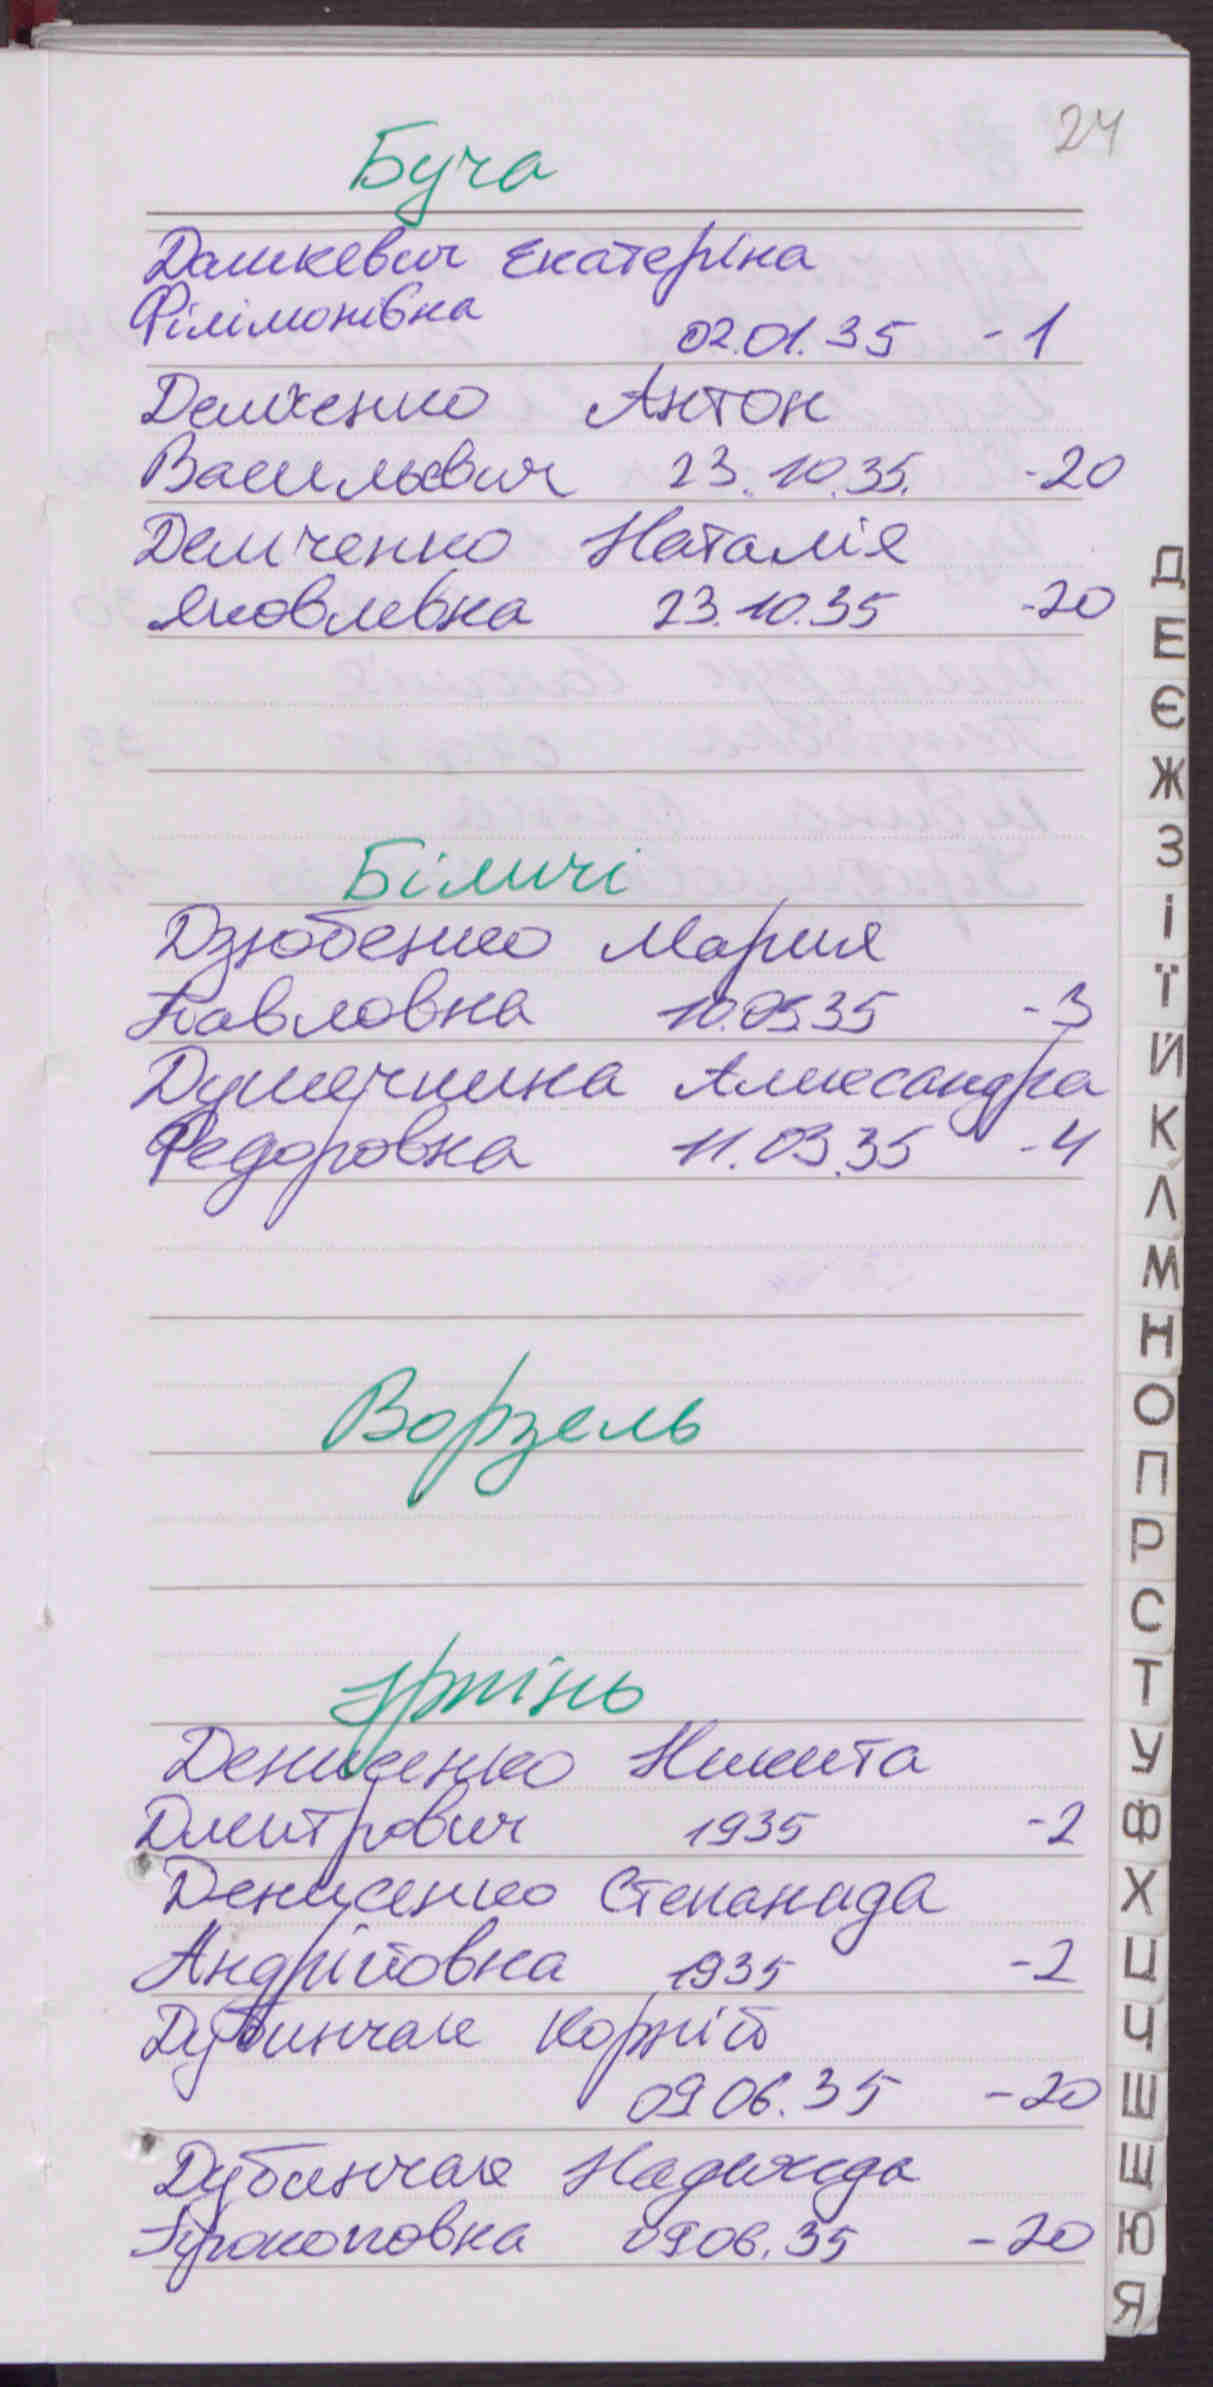 24
Буча
Дашкевич Екатеріна
Філімонівна 02.01.35 - 1
Демченко Антон
Васильевич 23.10.35. -20
Демченко Наталія
Яковлевна 23.10.35 -20
Біличі
Дзюбенко Мария
Павловна 10.03.35 -3
Душечкина Александра
Федоровна 11.03.35 -4
Ворзель
Ірпінь
Денисенко Никита
Дмитрович 1935 -2
Денисенко Степанида
Андрійовна 1935 -2
Дубинчак Корній
09.06.35 -20
Дубинчак Надежда
Прокоповна 09.06.35 -20
Д
Е
Є
Ж
З
І
Ї
Й
К
Л
М
Н
О
П
Р
С
Т
У
Ф
Х
Ц
Ч
Ш
Щ
Ю
Я